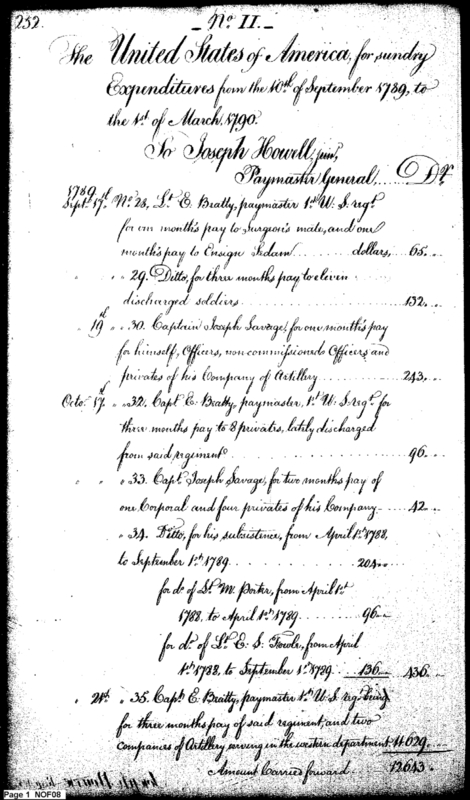 252.
No. II.
The United States of America, for sundry
Expenditures from the 10th of September 1789, to
the 1st of March, 1790.
To Joseph Howell, junr.
Paymaster General, Dr.
1789
Sept. 17th No. 28, Lt. E. Beatty, paymaster 1st U. S. regt.
for one month's pay to Surgeon's mate, and one
month's pay to Ensign Sedam dollars, 65.
" " 29. Ditto, for three months pay to eleven
discharged soldiers 132.
19th " " 30. Captain Joseph Savage, for one month's pay
for himself, Officers, non commissioned Officers and
privates of his Company of Artillery 243.
Octo. 17th " " 32. Capt. E. Beatty, paymaster, 1st U. S. regt. for
three months pay to 8 privates, lately discharged
from said regiment 96
" " " 33. Capt. Joseph Savage, for two months pay of
one Corporal and four privates of his Company 42
" 34. Ditto, for his subsistence, from April 1st 1788,
to September 1st 1789 204
for do. of Lt. M. Porter, from April 1st
1788, to April 1st 1789 96
for do. of Lt. E. S. Fowle, from April
1st 1788, to September 1st 1789 136 436
" 21st " " 35. Capt. E. Beatty, paymaster 1st U. S. regt. being
for three months pay of said regiment, and two
companies of Artillery, serving in the western department 11629
Amount Carried forward 12643
Page 1 NOF08